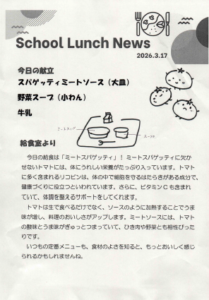 School Lunch News
2026.3.17
今日の献立
スパゲッティミートソース（大皿）
野菜スープ（小わん）
牛乳
給食室より
今日の給食は「ミートスパゲッティ」！ミートスパゲッティに欠か
せないトマトには、体にうれしい栄養がたっぷり入っています。トマト
に多く含まれるリコピンは、体の中で細胞を守るはたらきがある成分で、
健康づくりに役立つといわれています。さらに、ビタミンCも含まれ
ていて、体調を整えるサポートをしてくれます。
トマトは生で食べるだけでなく、ソースのようにお熱することでうま
味が増し、料理のおいしさがアップします。ミートソースには、トマト
の酸味とうま味がぎゅっとつまっていて、ひき肉や野菜とも相性がぴっ
たりです。
いつもの定番メニューも、食材のよさを知ると、もっとおいしく感じ
られるかもしれませんね。